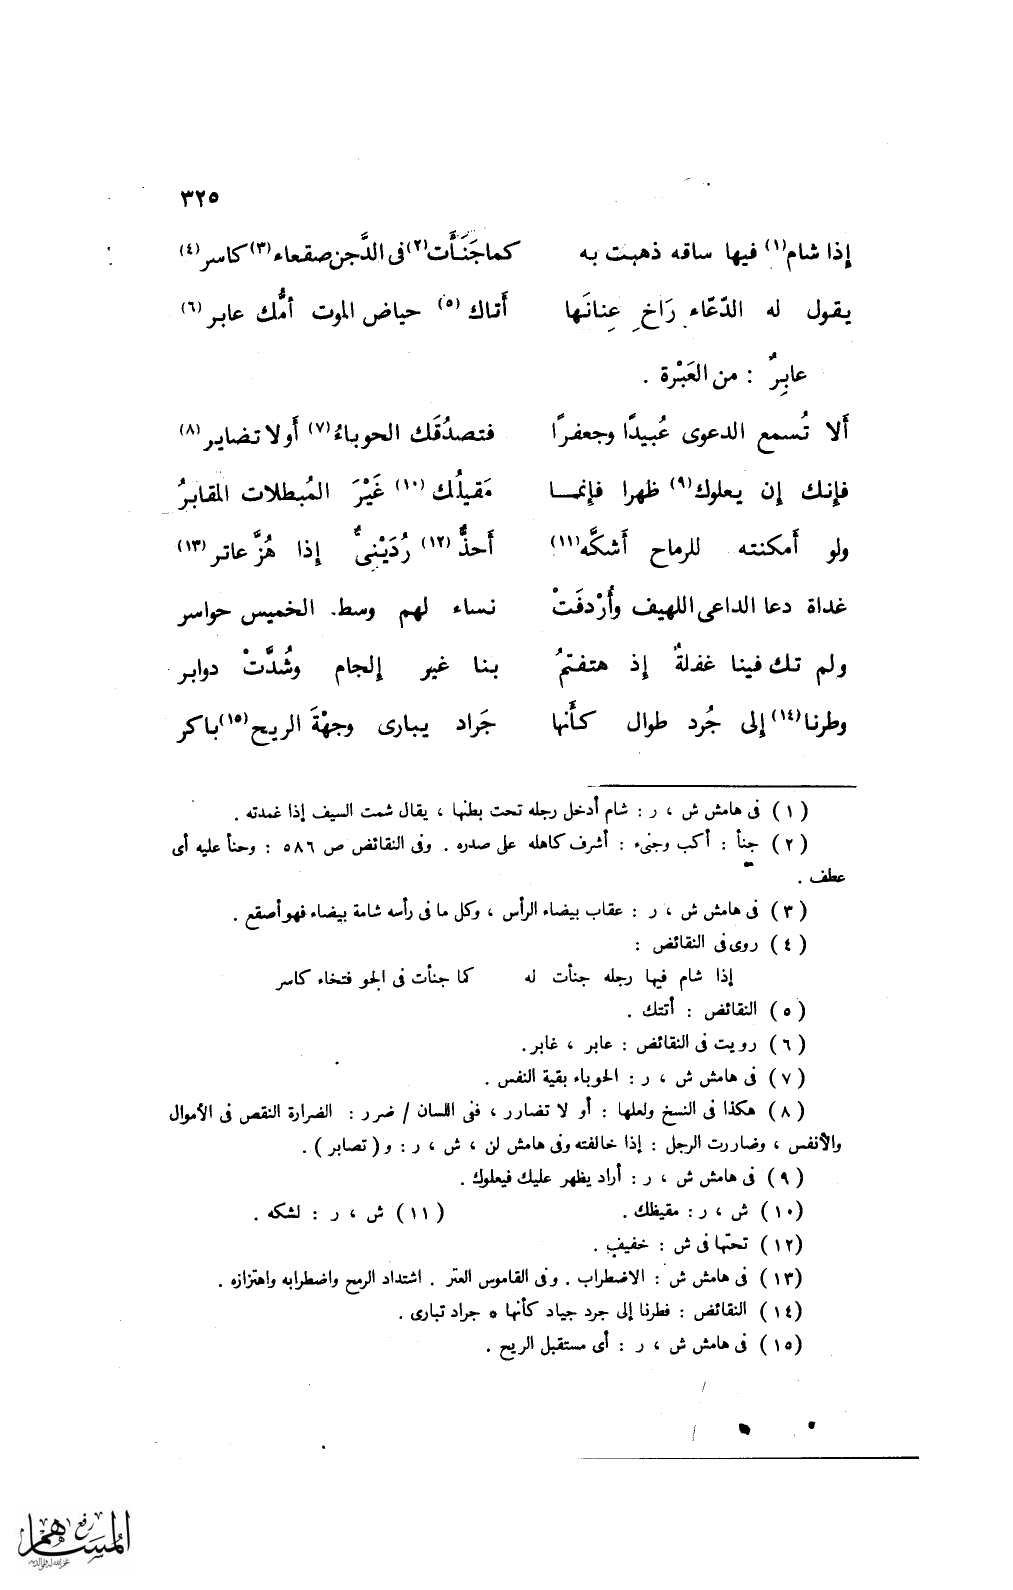 ٣٢٥
إذا شام(١) فيها ساقه ذهبت به كما جَنَأَت(٢) فى الدَّجن صقعاء(٣) كاسر(٤)
يقول له الدّعّاء رَاخِ عِنانَها أَتاك(٥) حياض الموت أمُّك عابر(٦)
عابِرٌ : من العَبْرة .
أَلا تُسمع الدعوى عُبيدًا وجعفرًا فتصدُقَك الحوباءُ(٧) أَو لا تضاير(٨)
فإنك إن يعلوك(٩) ظهرا فإنمــا مَقيلُك(١٠) غَيْرَ المُبطلات المقابرُ
ولو أمكنته للرماح أَشكَّه(١١) أَحذُّ(١٢) رُدَيْنِىٌّ إذا هُزَّ عاتر(١٣)
غداة دعا الداعى اللهيف وأُرْدفَتْ نساء لهم وسط الخميس حواسر
ولم تك فينا غفلةٌ إذ هتفتمُ بنا غير إلجام وشُدَّتْ دوابر
وطرنا(١٤) إلى جُرد طوال كأَنها جَراد يبارى وجهْةَ الريح(١٥) باكر
(١) فى هامش ش ، ر : شام أدخل رجله تحت بطنها ، يقال شمت السيف إذا غمدته .
(٢) جنأ : أكب وجنىء : أشرف كاهله على صدره . وفى النقائض ص ٥٨٦ : وحنأ عليه أى
عطف .
(٣) فى هامش ش ، ر : عقاب بيضاء الرأس ، وكل ما فى رأسه شامة بيضاء فهو أصقع .
(٤) روى فى النقائض :
إذا شام فيها رجله جنأت له كما جنأت فى الجو فتخاء كاسر
(٥) النقائض : أتتك .
(٦) رويت فى النقائض : عابر ، غابر .
(٧) فى هامش ش ، ر : الحوباء بقية النفس .
(٨) هكذا فى النسخ ولعلها : أو لا تضارر ، ففى اللسان / ضرر : الضرارة النقص فى الأموال
والأنفس ، وضاررت الرجل : إذا خالفته وفى هامش لن ، ش ، ر : و ( تصابر ) .
(٩) فى هامش ش ، ر : أراد يظهر عليك فيعلوك .
(١٠) ش ، ر : مقيظك . (١١) ش ، ر : لشكه .
(١٢) تحتها فى ش : خفيف .
(١٣) فى هامش ش : الاضطراب . وفى القاموس العتر . اشتداد الرمح واضطرابه واهتزازه .
(١٤) النقائض : فطرنا إلى جرد جياد كأنها * جراد تبارى .
(١٥) فى هامش ش ، ر : أى مستقبل الريح .
رفع
المساهم